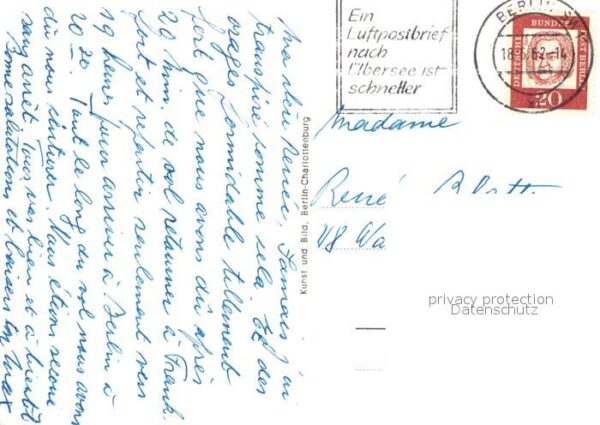 Ma bien
transpiré comme cela. Et des
orages formidable tellement
fort que nous avons dû après
20 min. de vol retourner à Frank.
fort et repartir seulement vers
19 heures pour arriver à Berlin à
20.20. Tout le long du vol nous avons
dû nous
sans arrêt. Tous va bien et à bientôt
Bonne salutations et baisers
Kunst und Bild, Berlin-Charlottenburg
Ein
Luftpostbrief
nach
Übersee ist
schneller
BERLIN SW
62-14
DEUTSCHE BUNDESPOST BERLIN
20
Madame
René
privacy protection
Datenschutz